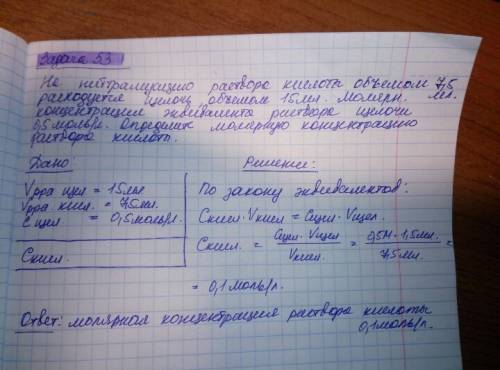 Задача 53
На нейтрализцию раствора кислота объемом 7,5 мл.
расходуется щелочь объемом 15мл. Молярн.
концентрация эквивалента раствора щелочи
0,5моль/л. Определите молярную концентрацию
раствора кислоты.
Дано:
Vр-ра щел = 15мл
Vр-ра кисл. = 7,5мл.
C щел. = 0,5моль/л.
Cкисл.
Решение:
По закону эквивалентов:
Cкисл. · Vкисл = Cщел. · Vщел.
Cкисл. = Cщел · Vщел / Vкисл. = 0,5М · 1,5мл. / 7,5мл. =
= 0,1моль/л.
Ответ: молярная концентрация раствора кислоты
0,1моль/л.